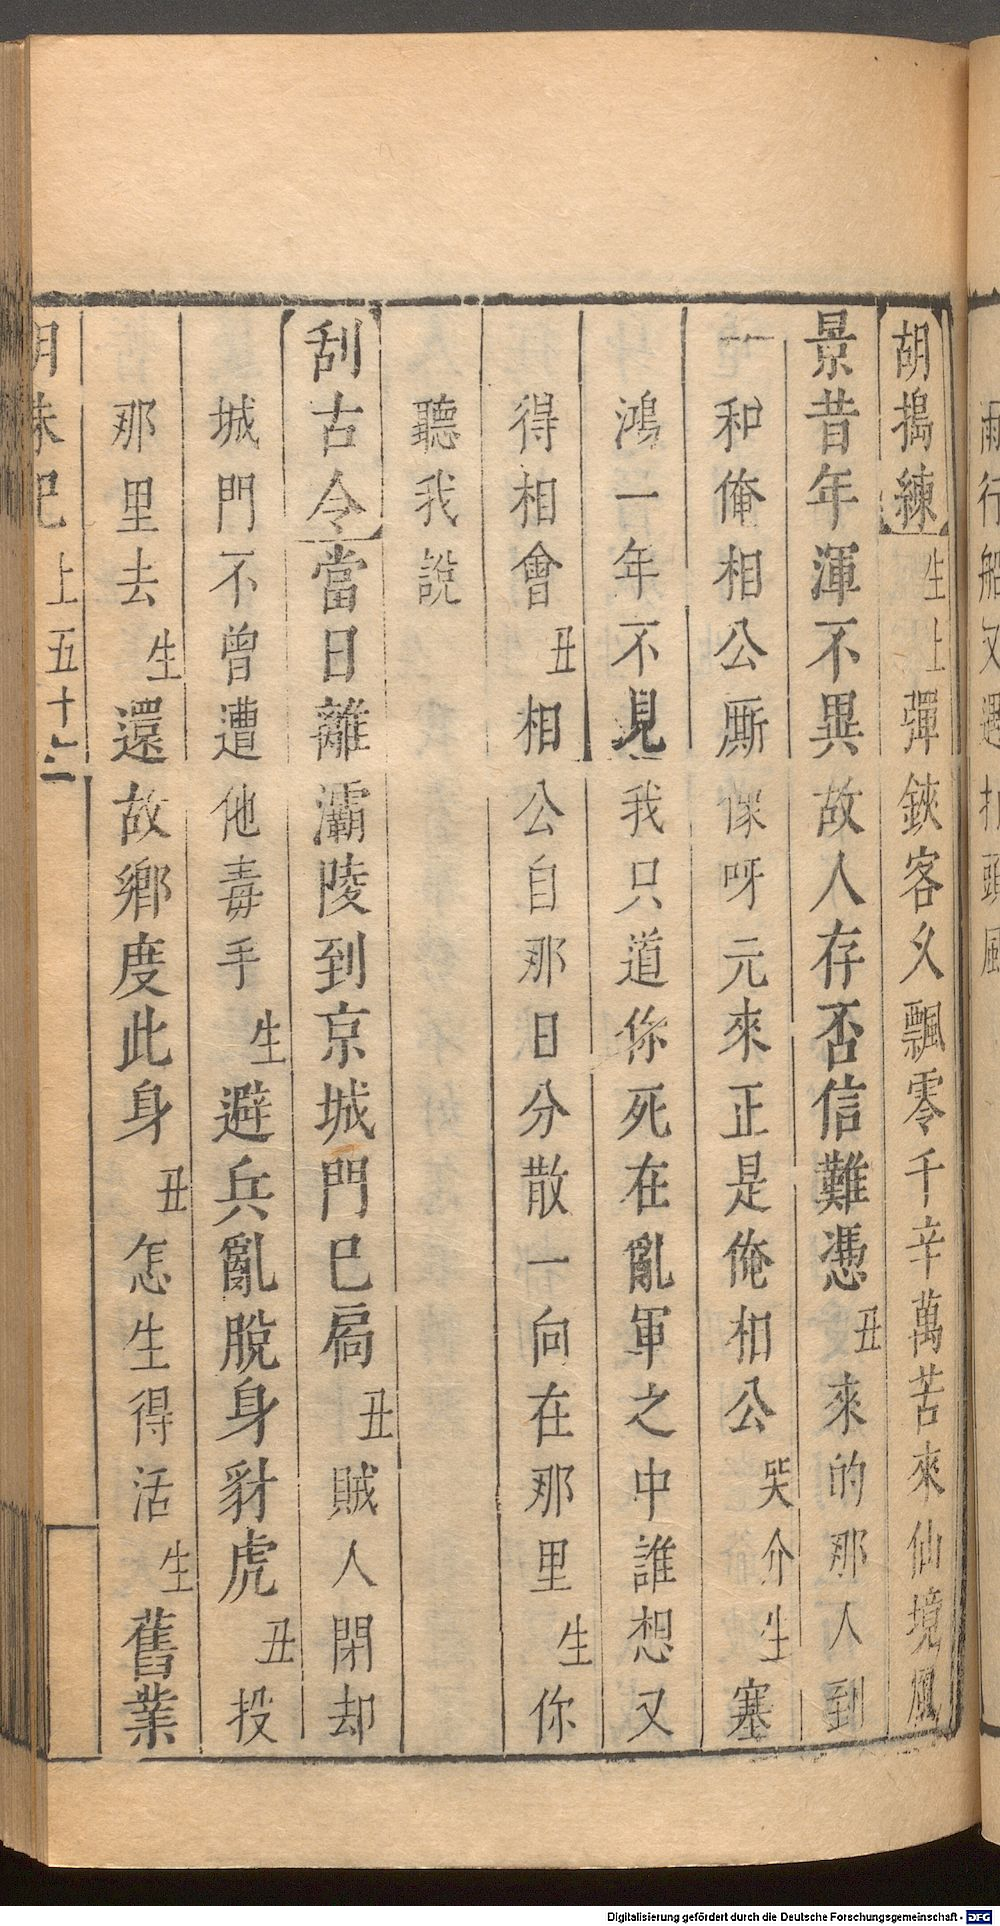 雨行船又遇打頭風
胡搗練生上彈鋏客久飄零千辛萬苦來仙境風
景昔年渾不異故人存否信難憑丑來的那人到
和俺相公厮像呀元來正是俺相公哭介生塞
鴻一年不見我只道你死在亂軍之中誰想又
得相會丑相公自那日分散一向在那里生你
聽我說
刮古令當日離灞陵到京城門已扄丑賊人閉却
城門不曾遭他毒手生避兵亂脫身豺虎丑投
那里去生還故鄉度此身丑怎生得活生舊業
明珠記 上五十二
Digitalisierung gefördert durch die Deutsche Forschungsgemeinschaft - DFG